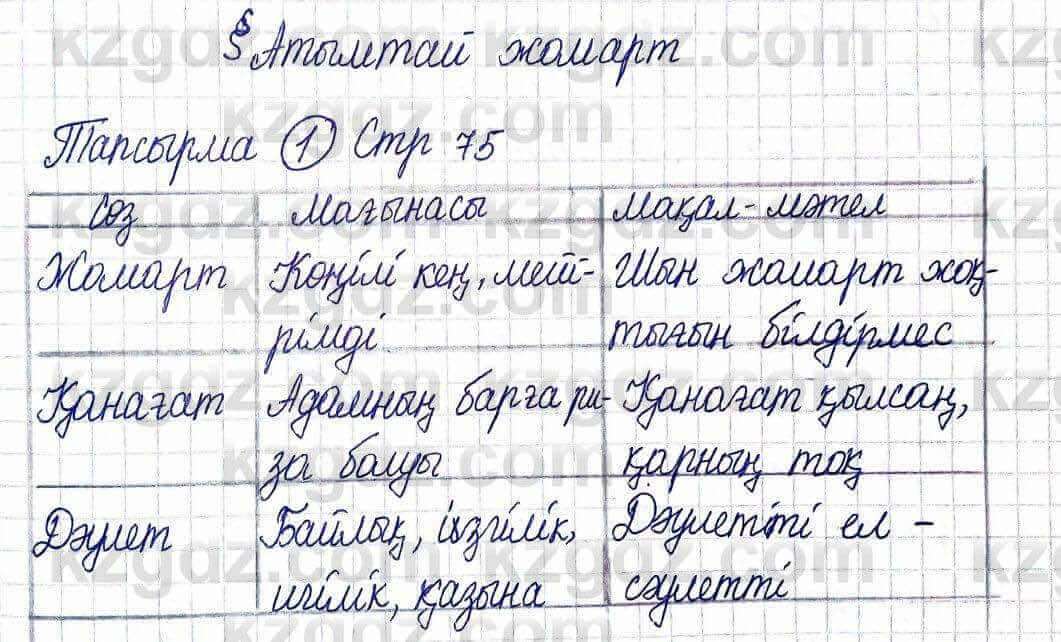 § Атымтай жомарт
Тапсырма 1 Стр 75
Сөз Мағынасы Мақал-мәтел
Жомарт Көңілі кең, мейі- Шын жомарт жоқ-
рімді тығын білдірмес
Қанағат Адамның барға ри- Қанағат қылсаң,
за балуы қарның тоқ
Дәулет Байлық, ізгілік, Дәулетті ел -
игілік, қазына сәулетті
kzgdz.com